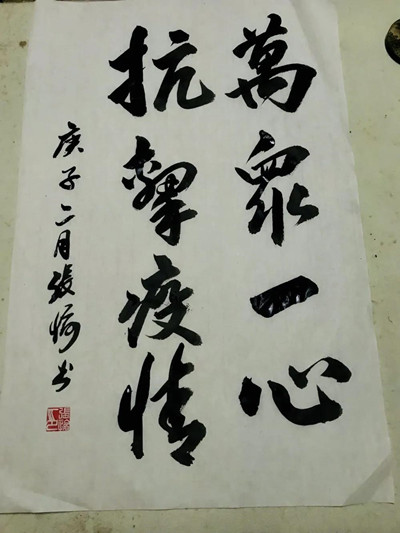 萬衆一心
抗擊疫情
庚子二月張书